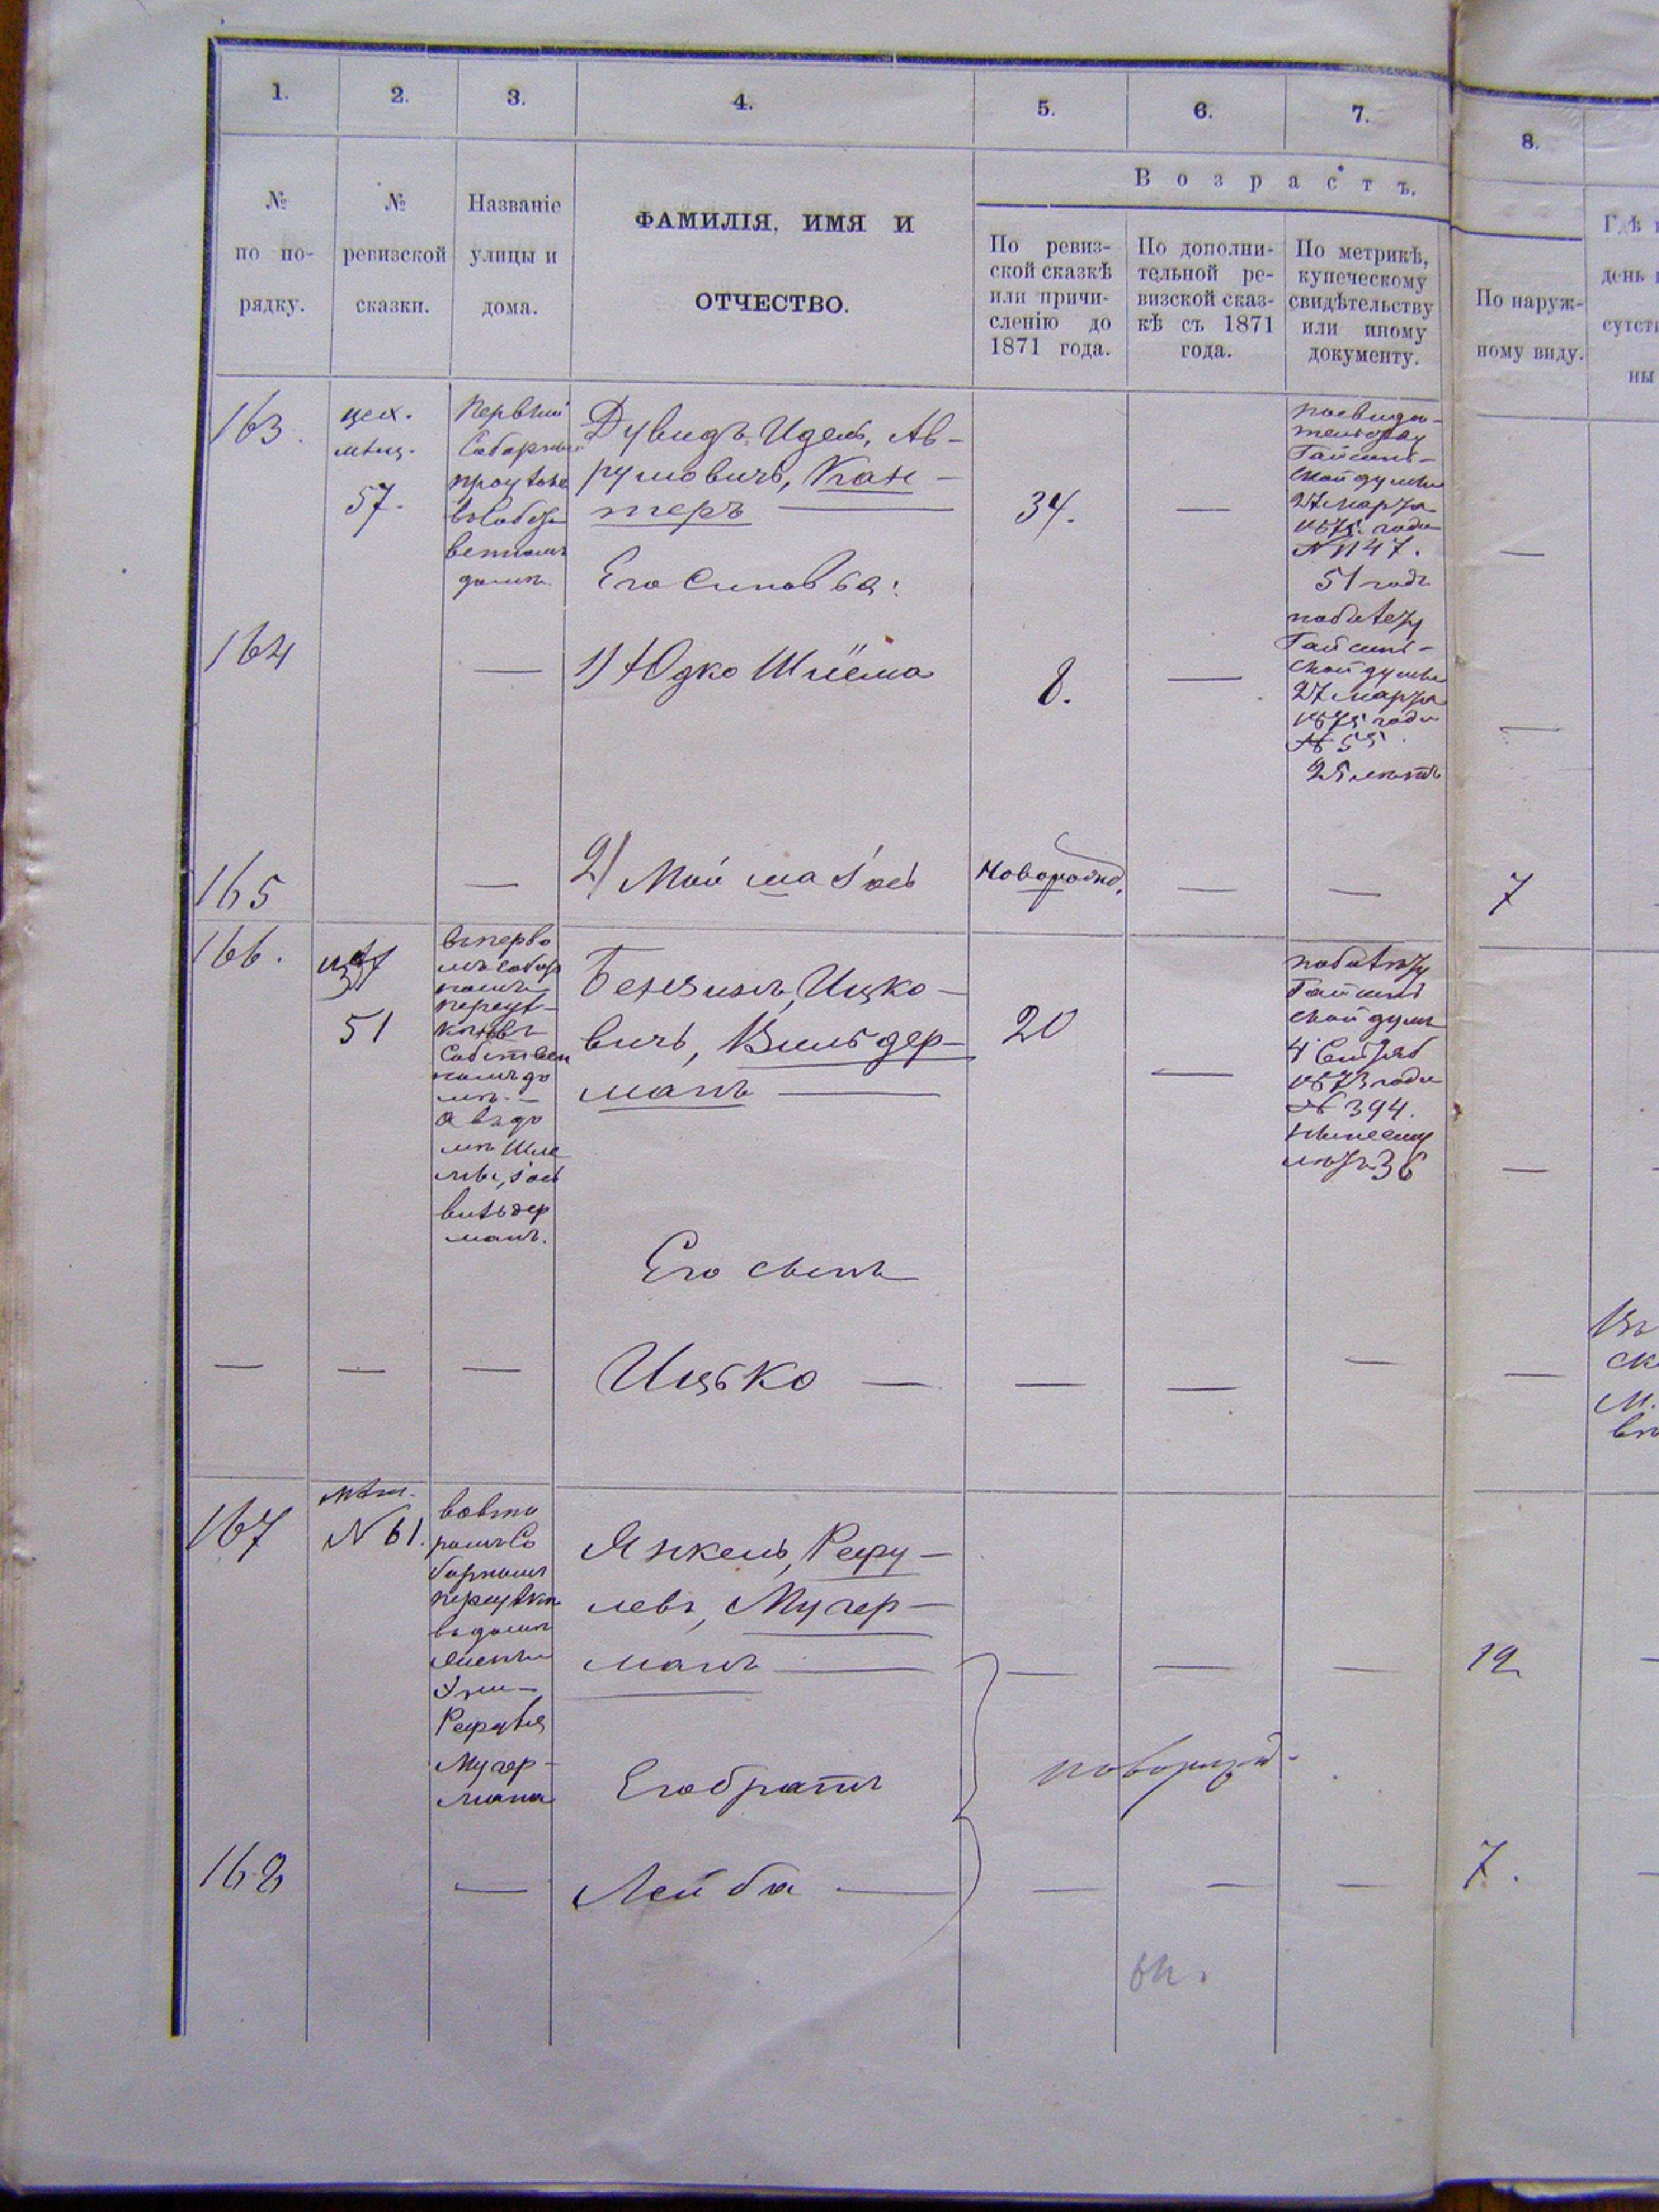 1.
2.
3.
4.
5.
6.
7.
8.
№ по по- рядку.
№ ревизской сказки.
Названіе улицы и дома.
ФАМИЛІЯ, ИМЯ И
ОТЧЕСТВО.
Возрастъ.
По ревиз-
ской сказкѣ
или причи-
сленію до
1871 года.
По дополни-
тельной ре-
визской сказ-
кѣ съ 1871
года.
По метрикѣ,
купеческому
свидѣтельству
или иному
документу.
По наруж-
ному виду.
Гдѣ
день
сутст
ны
163.
цех.
мѣщ.
57.
Первый
домѣ
Дувидъ Идель, Ав-
румовичъ, Кан-
теръ
34.
—
Гайсинс-
ской думы
27 марта
1875 года
№ 1147.
51 годъ
—
Его сыновья:
164
—
1) Юдко Шлёма
8.
—
по билету
Гайсинс-
ской думы
27 марта
1875 года
№ 55
25 лѣтъ
—
165
—
2) Мой
Новорожд.
—
—
7
166.
51
въ перво
мъ собор
номъ
переул-
Собствен
номъ до
мѣ. —
а въ до
мѣ Шле
мы,
Вильдер
манъ.
Беньямъ, Ицко-
вичъ, Вильдер-
манъ
20
—
по билету
Гайсинс
ской думы
4 Сентяб
1873 года
№ 394.
лѣтъ 36
—
Его сынъ
—
—
—
Ицько —
—
—
—
—
167
мѣщ.
№ 61.
во вто
ромъ Со
борномъ
переулкѣ
въ домѣ
Рефуля
Мучер-
мана
Янкель, Рефу-
левъ, Мучер-
манъ
—
—
—
12
Его братъ
новорожд.
168
—
Лейба —
—
—
—
7.